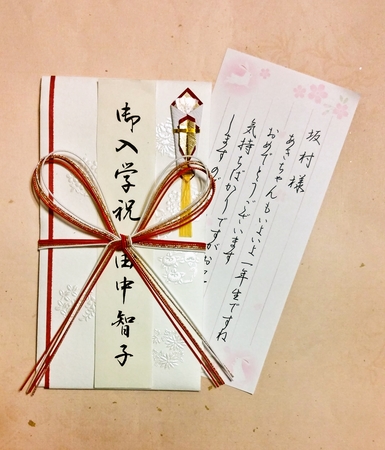 御入学祝
田中智子
坂村様
あきちゃんもいよいよ一年生ですね
おめでとうございます
気持ちばかりですがお
しますの